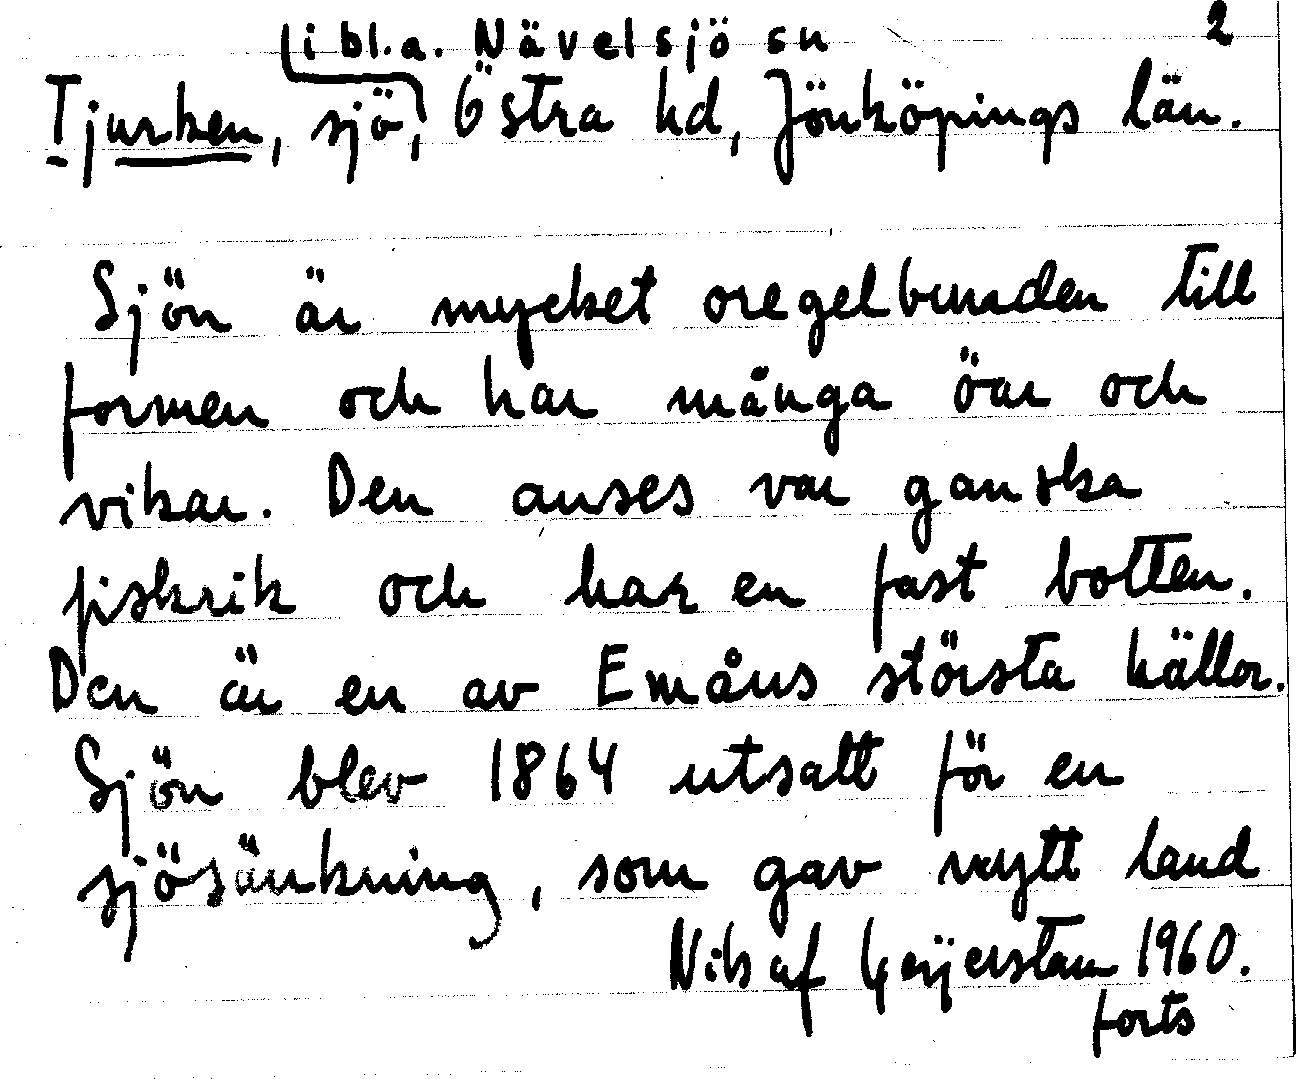 i bl.a. Nävelsjö sn 2
Tjurken, sjö, Östra hd, Jönköpings län.
Sjön är mycket oregelbunden till
formen och har många öar och
vikar. Den anses var ganska
fiskrik och har en fast botten.
Den är en av Emåns största källor.
Sjön blev 1864 utsatt för en
sjösänkning, som gav nytt land
Nils af Geijerstam 1960.
forts